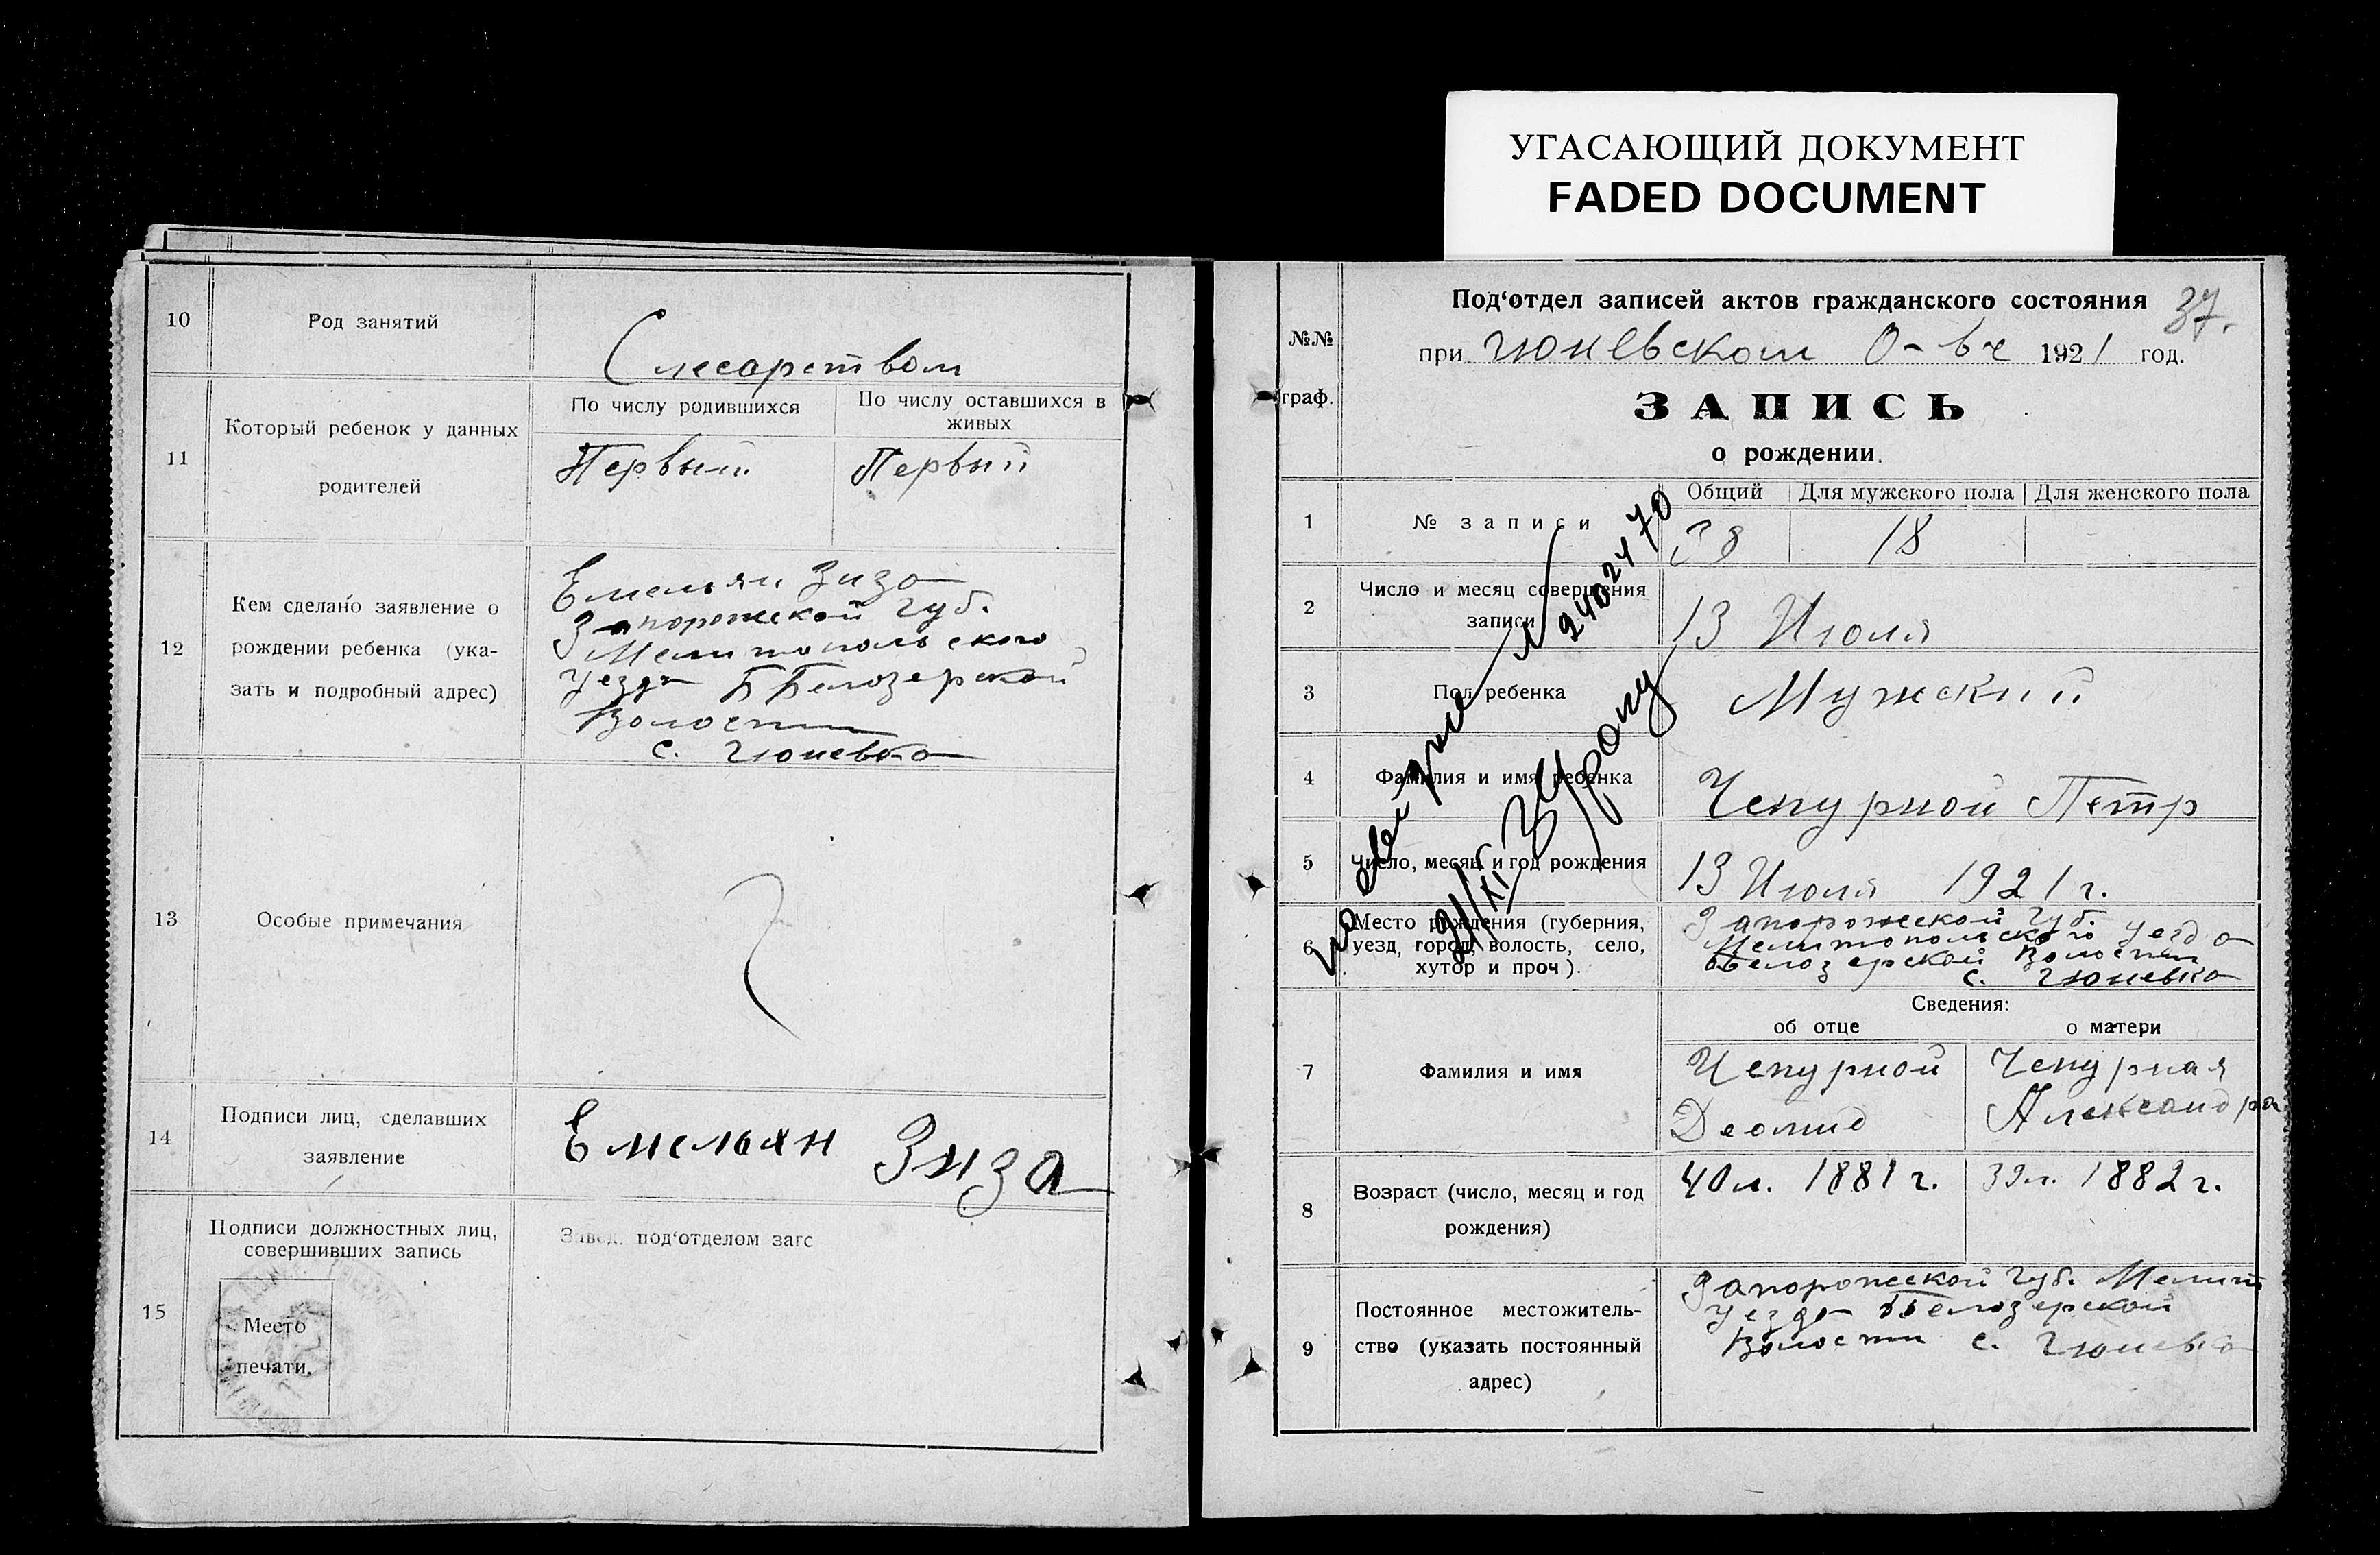 УГАСАЮЩИЙ ДОКУМЕНТ
FADED DOCUMENT
10
Род занятий
Слесарством
11
Который ребенок у данных
родителей
По числу родившихся
По числу оставшихся в
живых
Первый
Первый
12
Кем сделано заявление о
рождении ребенка (ука-
зать и подробный адрес)
Емельян Зиза
Запорожской Губ.
Мелитопольского
Уезда Б Белозерской
Волости
с. Гюневка
13
Особые примечания
14
Подписи лиц, сделавших
заявление
Емельян Зиза
15
Подписи должностных лиц,
совершивших запись
Место
печати.
Завед. под‘отделом загс
№№
граф.
Под‘отдел записей актов гражданского состояния
37.
при Гюневском 1921 год.
ЗАПИСЬ
о рождении.
1
№ записи
Общий
Для мужского пола
Для женского пола
38
18
2
Число и месяц совершения
записи
13 Июля
3
Пол ребенка
Мужский
4
Фамилия и имя ребенка
Чепурной Петр
5
Число, месяц и год рождения
13 Июля 1921 г.
6
Место рождения (губерния,
уезд, город, волость, село,
хутор и проч).
Запорожской Губ.
Мелитопольского Уезда
Белозерской Волости
с. Гюневка
Сведения:
об отце
о матери
7
Фамилия и имя
Чепурной
Деомид
Чепурная
Александра
8
Возраст (число, месяц и год
рождения)
40 л. 1881 г.
39 л. 1882 г.
9
Постоянное местожитель-
ство (указать постоянный
адрес)
Запорожской Губ. Мелит
Уезда Белозерской
Волости с. Гюневка
2402470